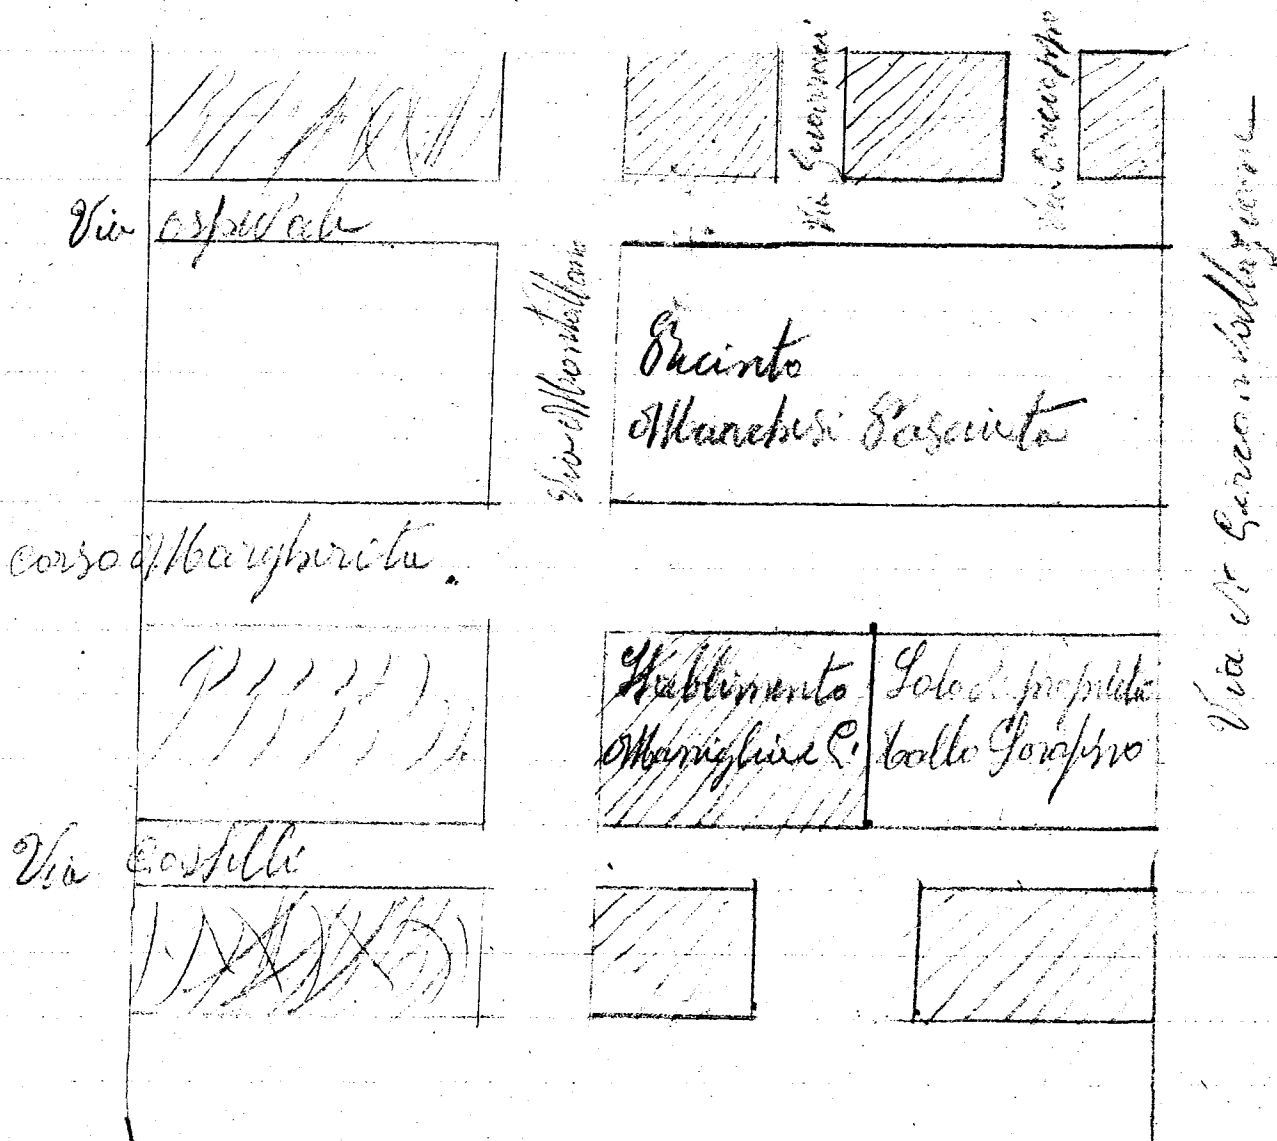 Via Guarnaci
Via ospitale
Via Montallano
Recinto
Marchesi Pasciuta
Via di Circonvallazione
corso Margherita.
Stablimento
Maniglia e C.i
Solo di proprietà
Collo Serafino
Via Castelli